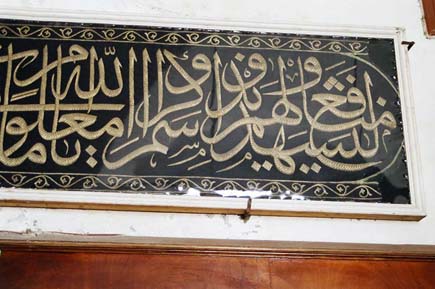 ليشهدوا منافع لهم ويذكروا اسم الله في أيام معلومات